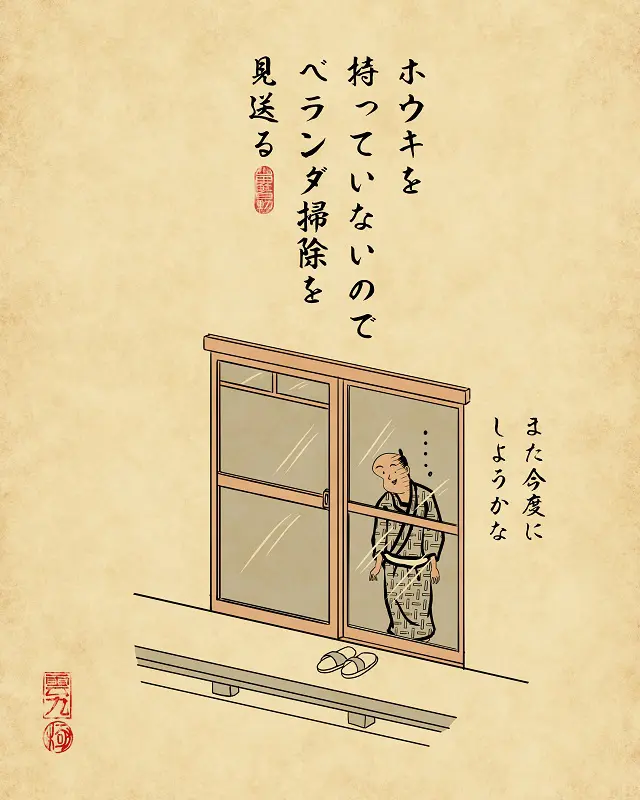 ホウキを
持っていないので
ベランダ掃除を
見送る
また今度に
しようかな